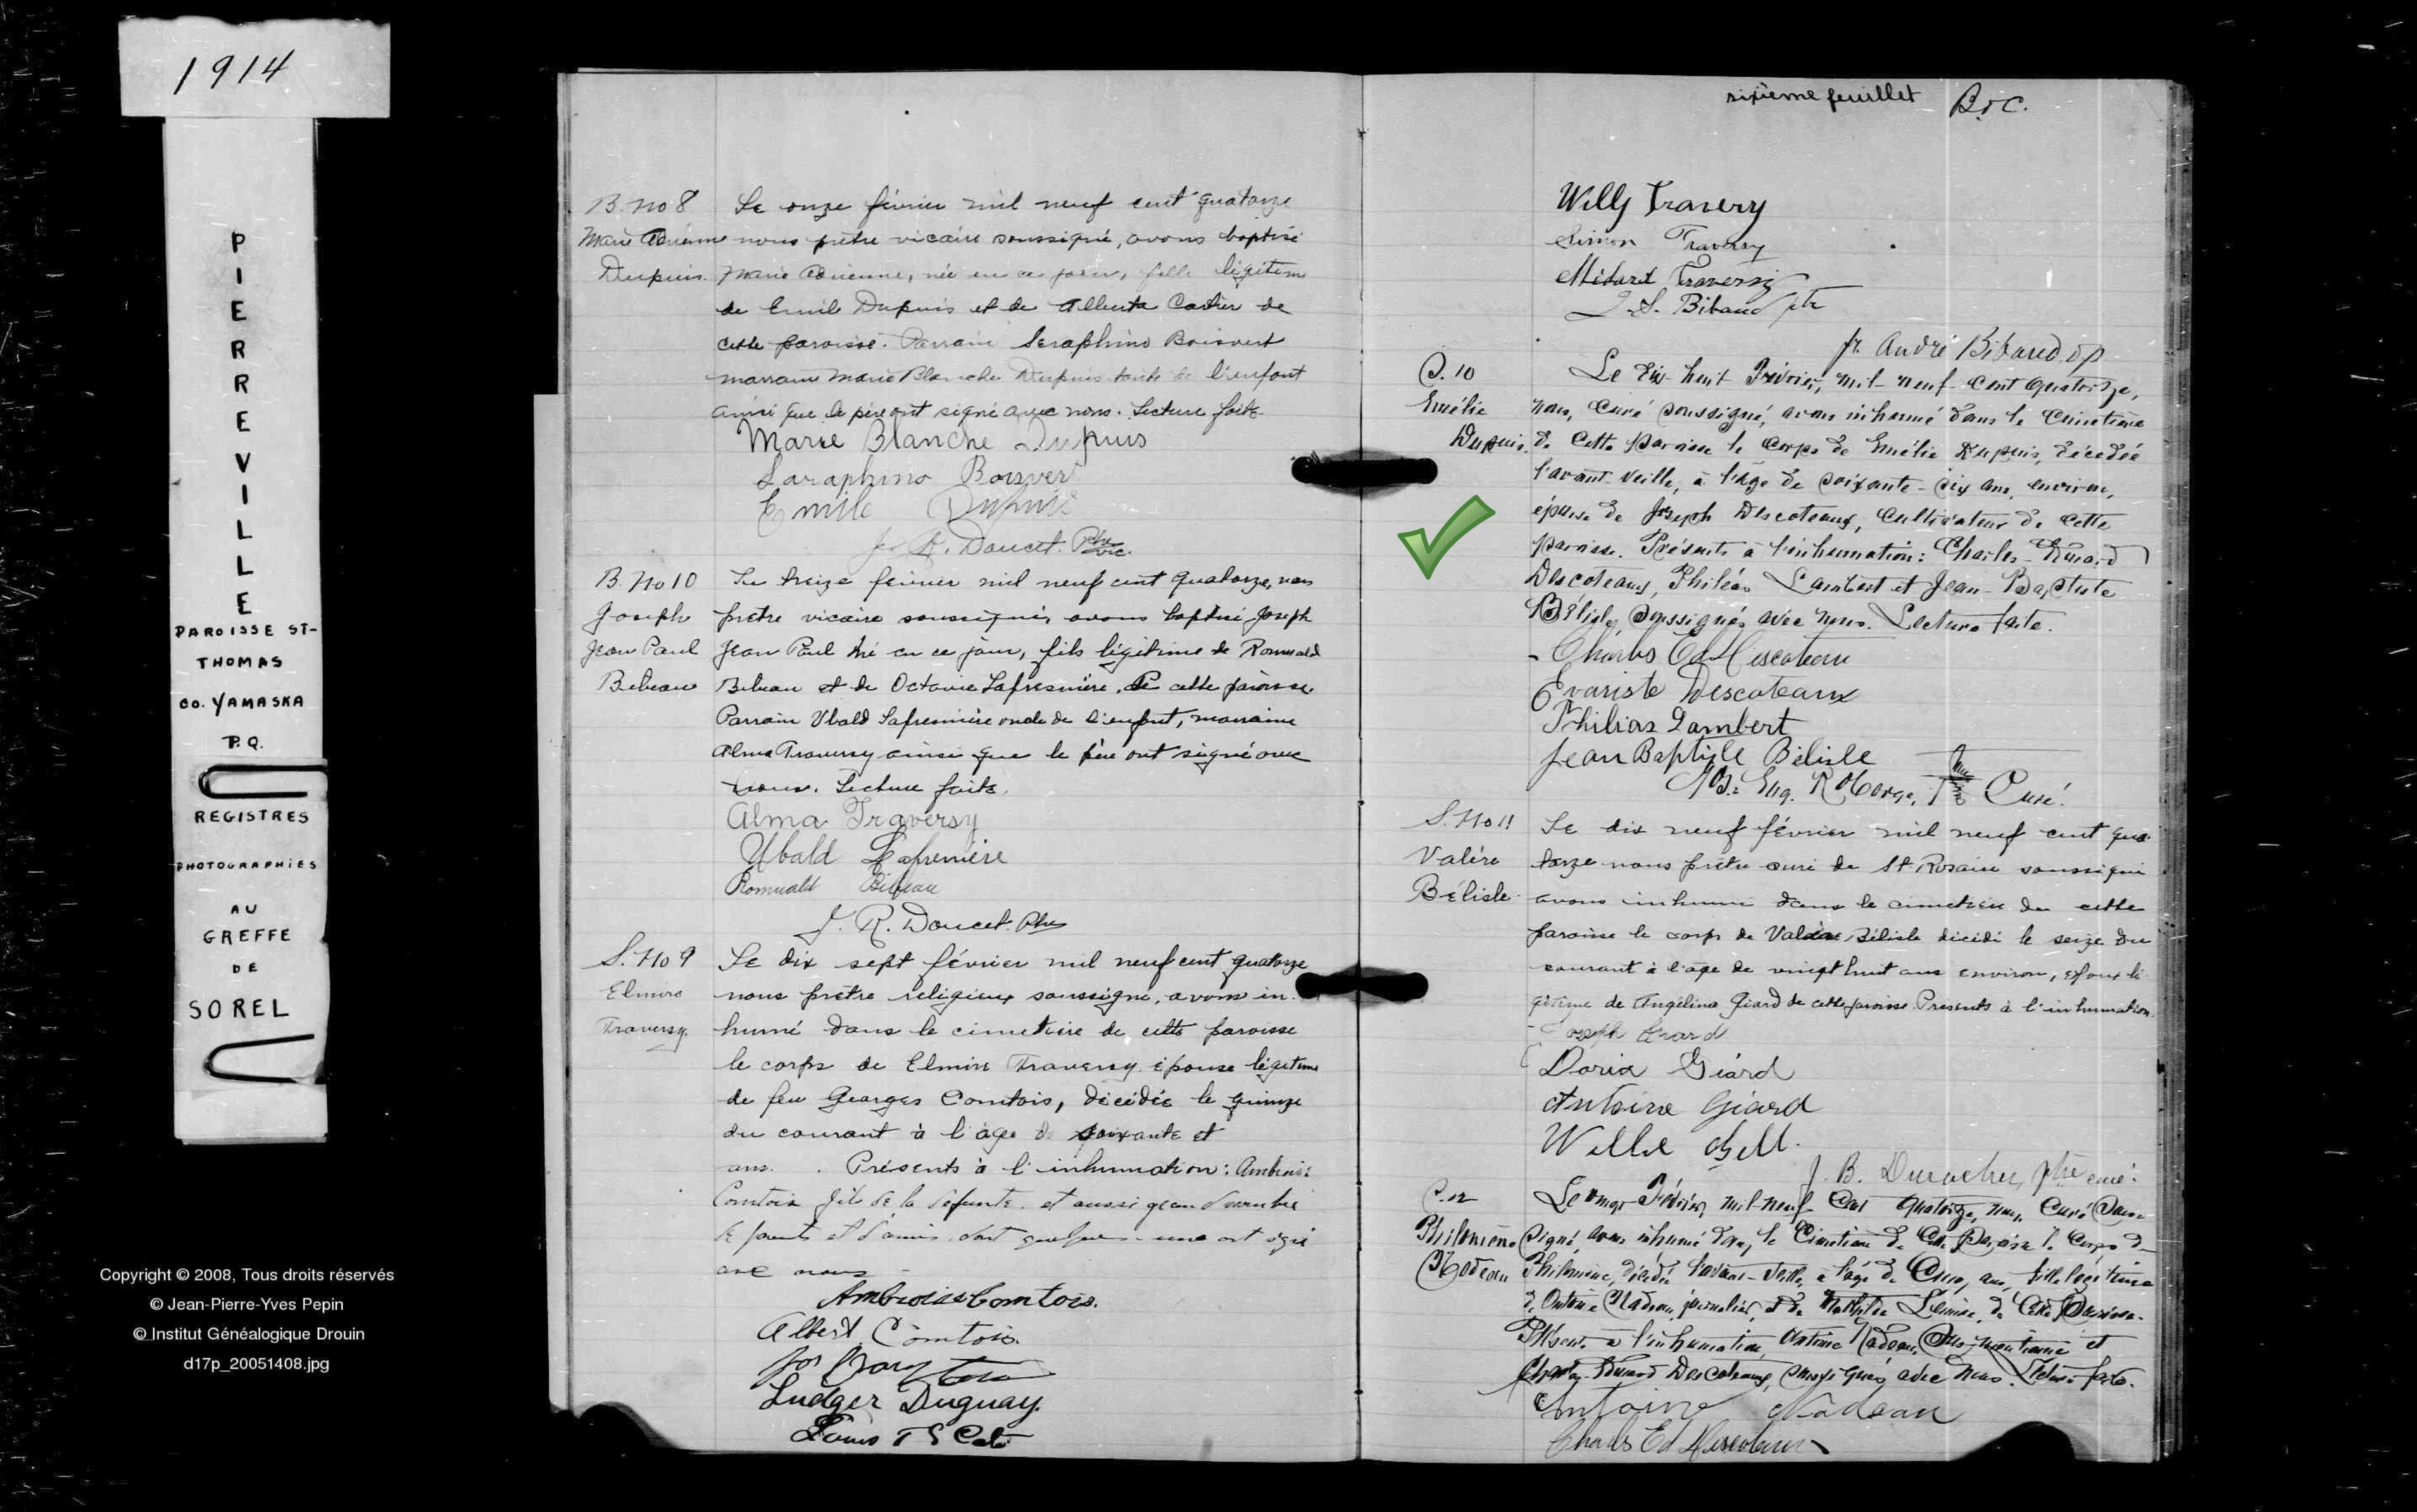 1914
PIERREVILLE
PAROISSE ST-
THOMAS
CO. YAMASKA
P.Q.
REGISTRES
PHOTOGRAPHIES
AU
GREFFE
DE
SOREL
Copyright © 2008, Tous droits réservés
© Jean-Pierre-Yves Pepin
© Institut Généalogique Drouin
d17p_20051408.jpg
B. No 8
Marie
Dupuis.
Le onze février mil neuf cent quatorze
nous prêtre vicaire soussigné, avons baptisé
Marie née en ce jour, fille légitime
de Emile Dupuis et de de
cette paroisse. Parrain Seraphino Boisvert
marraine Marie Blanche Dupuis tante de l'enfant
ainsi que le père ont signé avec nous. Lecture faite
Marie Blanche Dupuis
Saraphino Boisvert
Emile Dupuis
J. R. Doucet. Ptre vic.
B. No 10
Joseph
Jean Paul
Bibeau
Le treize février mil neuf cent quatorze, nous
prêtre vicaire soussigné, avons baptisé Joseph
Jean Paul né en ce jour, fils légitime de Romuald
Bibeau et de Octavie Lafrenière, de cette paroisse.
Parrain Ubald Lafrenière oncle de l'enfant, marraine
Alma Traversy ainsi que le père ont signé avec
nous. Lecture faite.
Alma Traversy
Ubald Lafrenière
Romuald Bibeau
J. R. Doucet. Ptre
S. No 9
Elmire
Traversy.
Le dix sept février mil neuf cent quatorze
nous prêtre religieux soussigné, avons in-
humé dans le cimetière de cette paroisse
le corps de Elmire Traversy épouse légitime
de feu Georges Comtois, décédée le quinze
du courant à l'âge de soixante et
ans. . Présents à l'inhumation: Ambroise
Comtois fils de la défunte et aussi grand nombre
de parents et d'amis dont quelques-uns ont signé
avec nous -
Ambroise Comtois.
Albert Comtois.
Ludger Duguay.
Louis
sixième feuillet
Willy Travery
Simon Traversy
Médard Traversy
Bibaud ptr
fr. André Bibaud. o.p.
S. 10
Emélie
Dupuis.
Le dix-huit Février, mil-neuf-cent quatorze,
nous, Curé soussigné, avons inhumé dans le Cimetière
de Cette Paroisse le Corps de Emélie Dupuis, décédée
l'avant-veille, à l'âge de soixante-dix ans, environ,
épouse de Joseph Descoteaux, Cultivateur de Cette
Paroisse. Présents à l'inhumation: Charles-Edouard
Descoteaux, Philéas Lambert et Jean-Baptiste
Bélisle, soussignés avec nous. Lecture faite.
Charles Ed Descoteau
Evariste Descoteaux
Philias Lambert
Jean Baptiste Bélisle
Eug. Ptre Curé.
S. No 11
Valère
Bélisle
Le dix neuf février mil neuf cent qua-
torze nous prêtre curé de St-Rosaire soussigné
avons inhumé dans le cimetière de cette
paroisse le corps de Valère Bélisle décédé le seize du
courant à l'âge de vingt huit ans environ, époux lé-
gitime de Angélina Giard de cette paroisse. Présents à l'inhumation.
Joseph Girard
Doria Giard
Antoine Giard
Willie Gill.
J. B. Durocher, ptre curé.
S. 12
Philomène
Nadeau
Le Février mil-neuf-Cent Quatorze, nous, Curé Sous-
signé, avons inhumé dans le Cimetière de Cette Paroisse le Corps de
Philomène, décédée l'avant-veille, à l'âge de ans, fille légitime
d'Antoine Nadeau, journalier, et de de Cette Paroisse.
Présents à l'inhumation, Antoine Nadeau, sus-mentionné et
Charles-Edouard Descoteaux, soussignés avec nous. Lecture faite.
Antoine Nadeau
Charles Ed Descoteaux